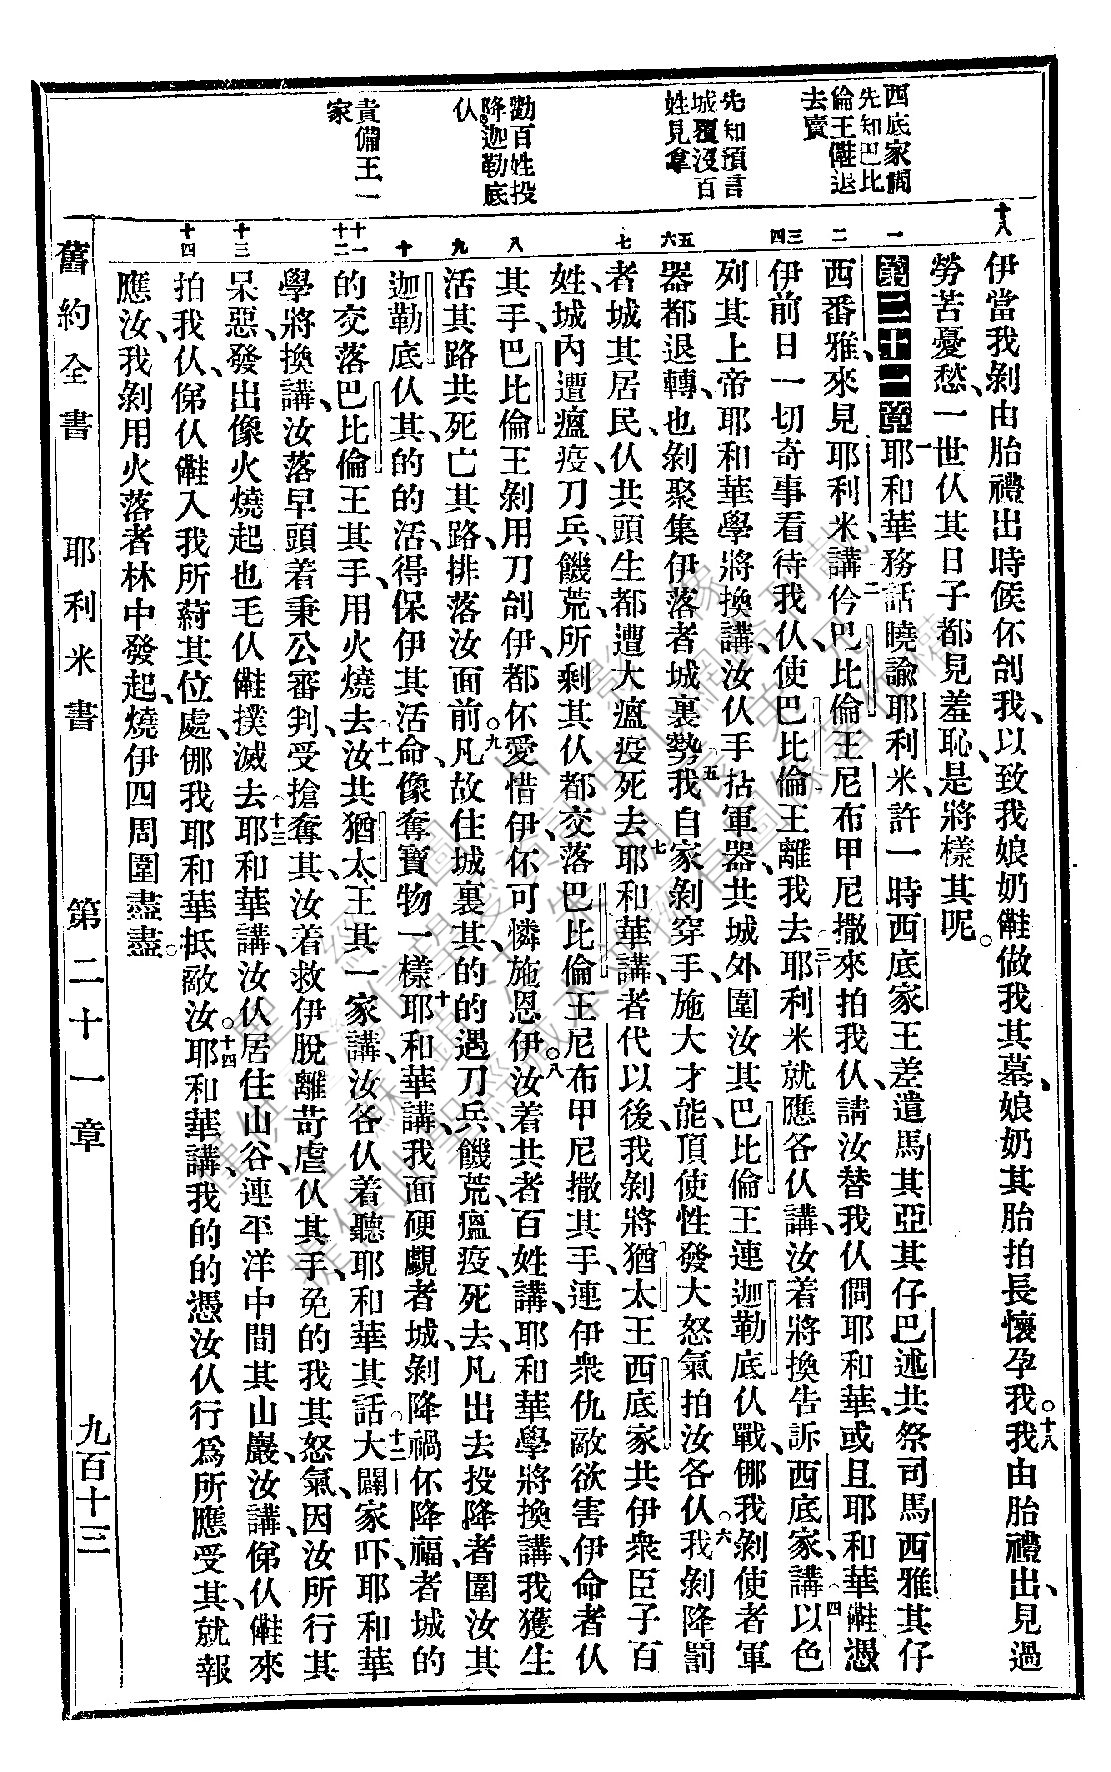 西底家問
先知巴比
倫王𣍐退
去賣
先知預言
城覆沒百
姓見拿
勸百姓投
降迦勒底
仈
責備王一
家
十八
一
二
三
四
五
六
七
八
九
十
十一
十二
十三
十四
伊當我剝由胎禮出時候伓刣我、以致我娘奶𣍐做我其墓、娘奶其胎拍長懷孕我。十八我由胎禮出、見過
勞苦憂愁、一世仈其日子都見羞恥、是將樣其呢。
第二十一章 一耶和華務話曉諭耶利米、許一時西底家王差遣馬其亞其仔巴述共祭司馬西雅其仔
西番雅來見耶利米講、二仱巴比倫王尼布甲尼撒來拍我仈、請汝替我仈問耶和華、或且耶和華𣍐憑
伊前日一切奇事看待我仈、使巴比倫王離我去。三耶利米就應各仈講、汝着將換告訴西底家講、四以色
列其上帝耶和華學將換講、汝仈手拈軍器共城外圍汝其巴比倫王連迦勒底仈戰、㑚我剝使者軍
器都退轉、也剝聚集伊落者城裏勢。五我自家剝穿手、施大才能、頂使性發大怒氣拍汝各仈。六我剝降罰
者城其居民、仈共頭生都遭大瘟疫死去。七耶和華講、者代以後、我剝將猶太王西底家共伊衆臣子百
姓、城內遭瘟疫、刀兵、饑荒、所剩其仈都交落巴比倫王尼布甲尼撒其手、連伊衆仇敵欲害伊命者仈
其手、巴比倫王剝用刀刣伊、都伓愛惜伊、伓可憐施恩伊。八汝着共者百姓講、耶和華學將換講、我獲生
活其路共死亡其路、排落汝面前。九凡故住城裏其的的遇刀兵、饑荒、瘟疫、死去、凡出去投降者圍汝其
迦勒底仈其、的的活、得保伊其活命、像奪寶物一樣。十耶和華講、我面硬覷者城、剝降禍伓降福、者城的
的交落巴比倫王其手、用火燒去。十一汝共猶太王其一家講、汝各仈着聽耶和華其話。十二大闢家吓、耶和華
學將換講、汝落早頭着秉公審判、受搶奪其、汝着救伊脫離苛虐仈其手、免的我其怒氣、因汝所行其
呆惡、發出像火燒起、也毛仈𣍐撲滅去。十三耶和華講、汝仈居住山谷、連平洋中間其山巖、汝講、俤仈𣍐來
拍我仈、俤仈𣍐入我所䔿其位處、㑚我耶和華抵敵汝。十四耶和華講、我的的憑汝仈行爲所應受其、就報
應汝、我剝用火落者林中發起、燒伊四周圍盡盡。
舊約全書 耶利米書 第二十一章 九百十三